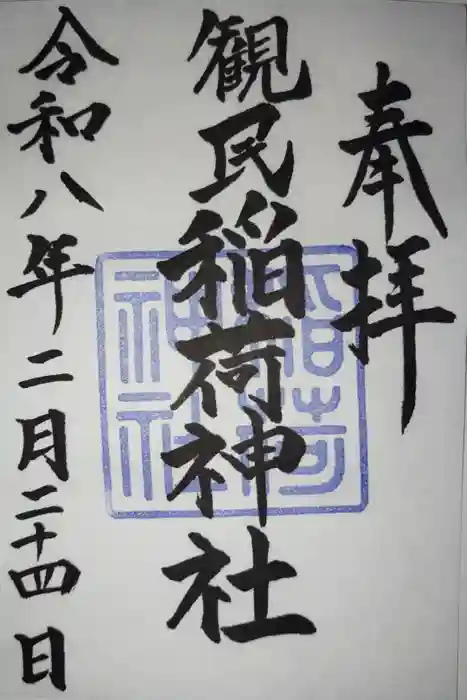 奉拝
観民稲荷神社
稲荷神社
令和八年二月二十四日